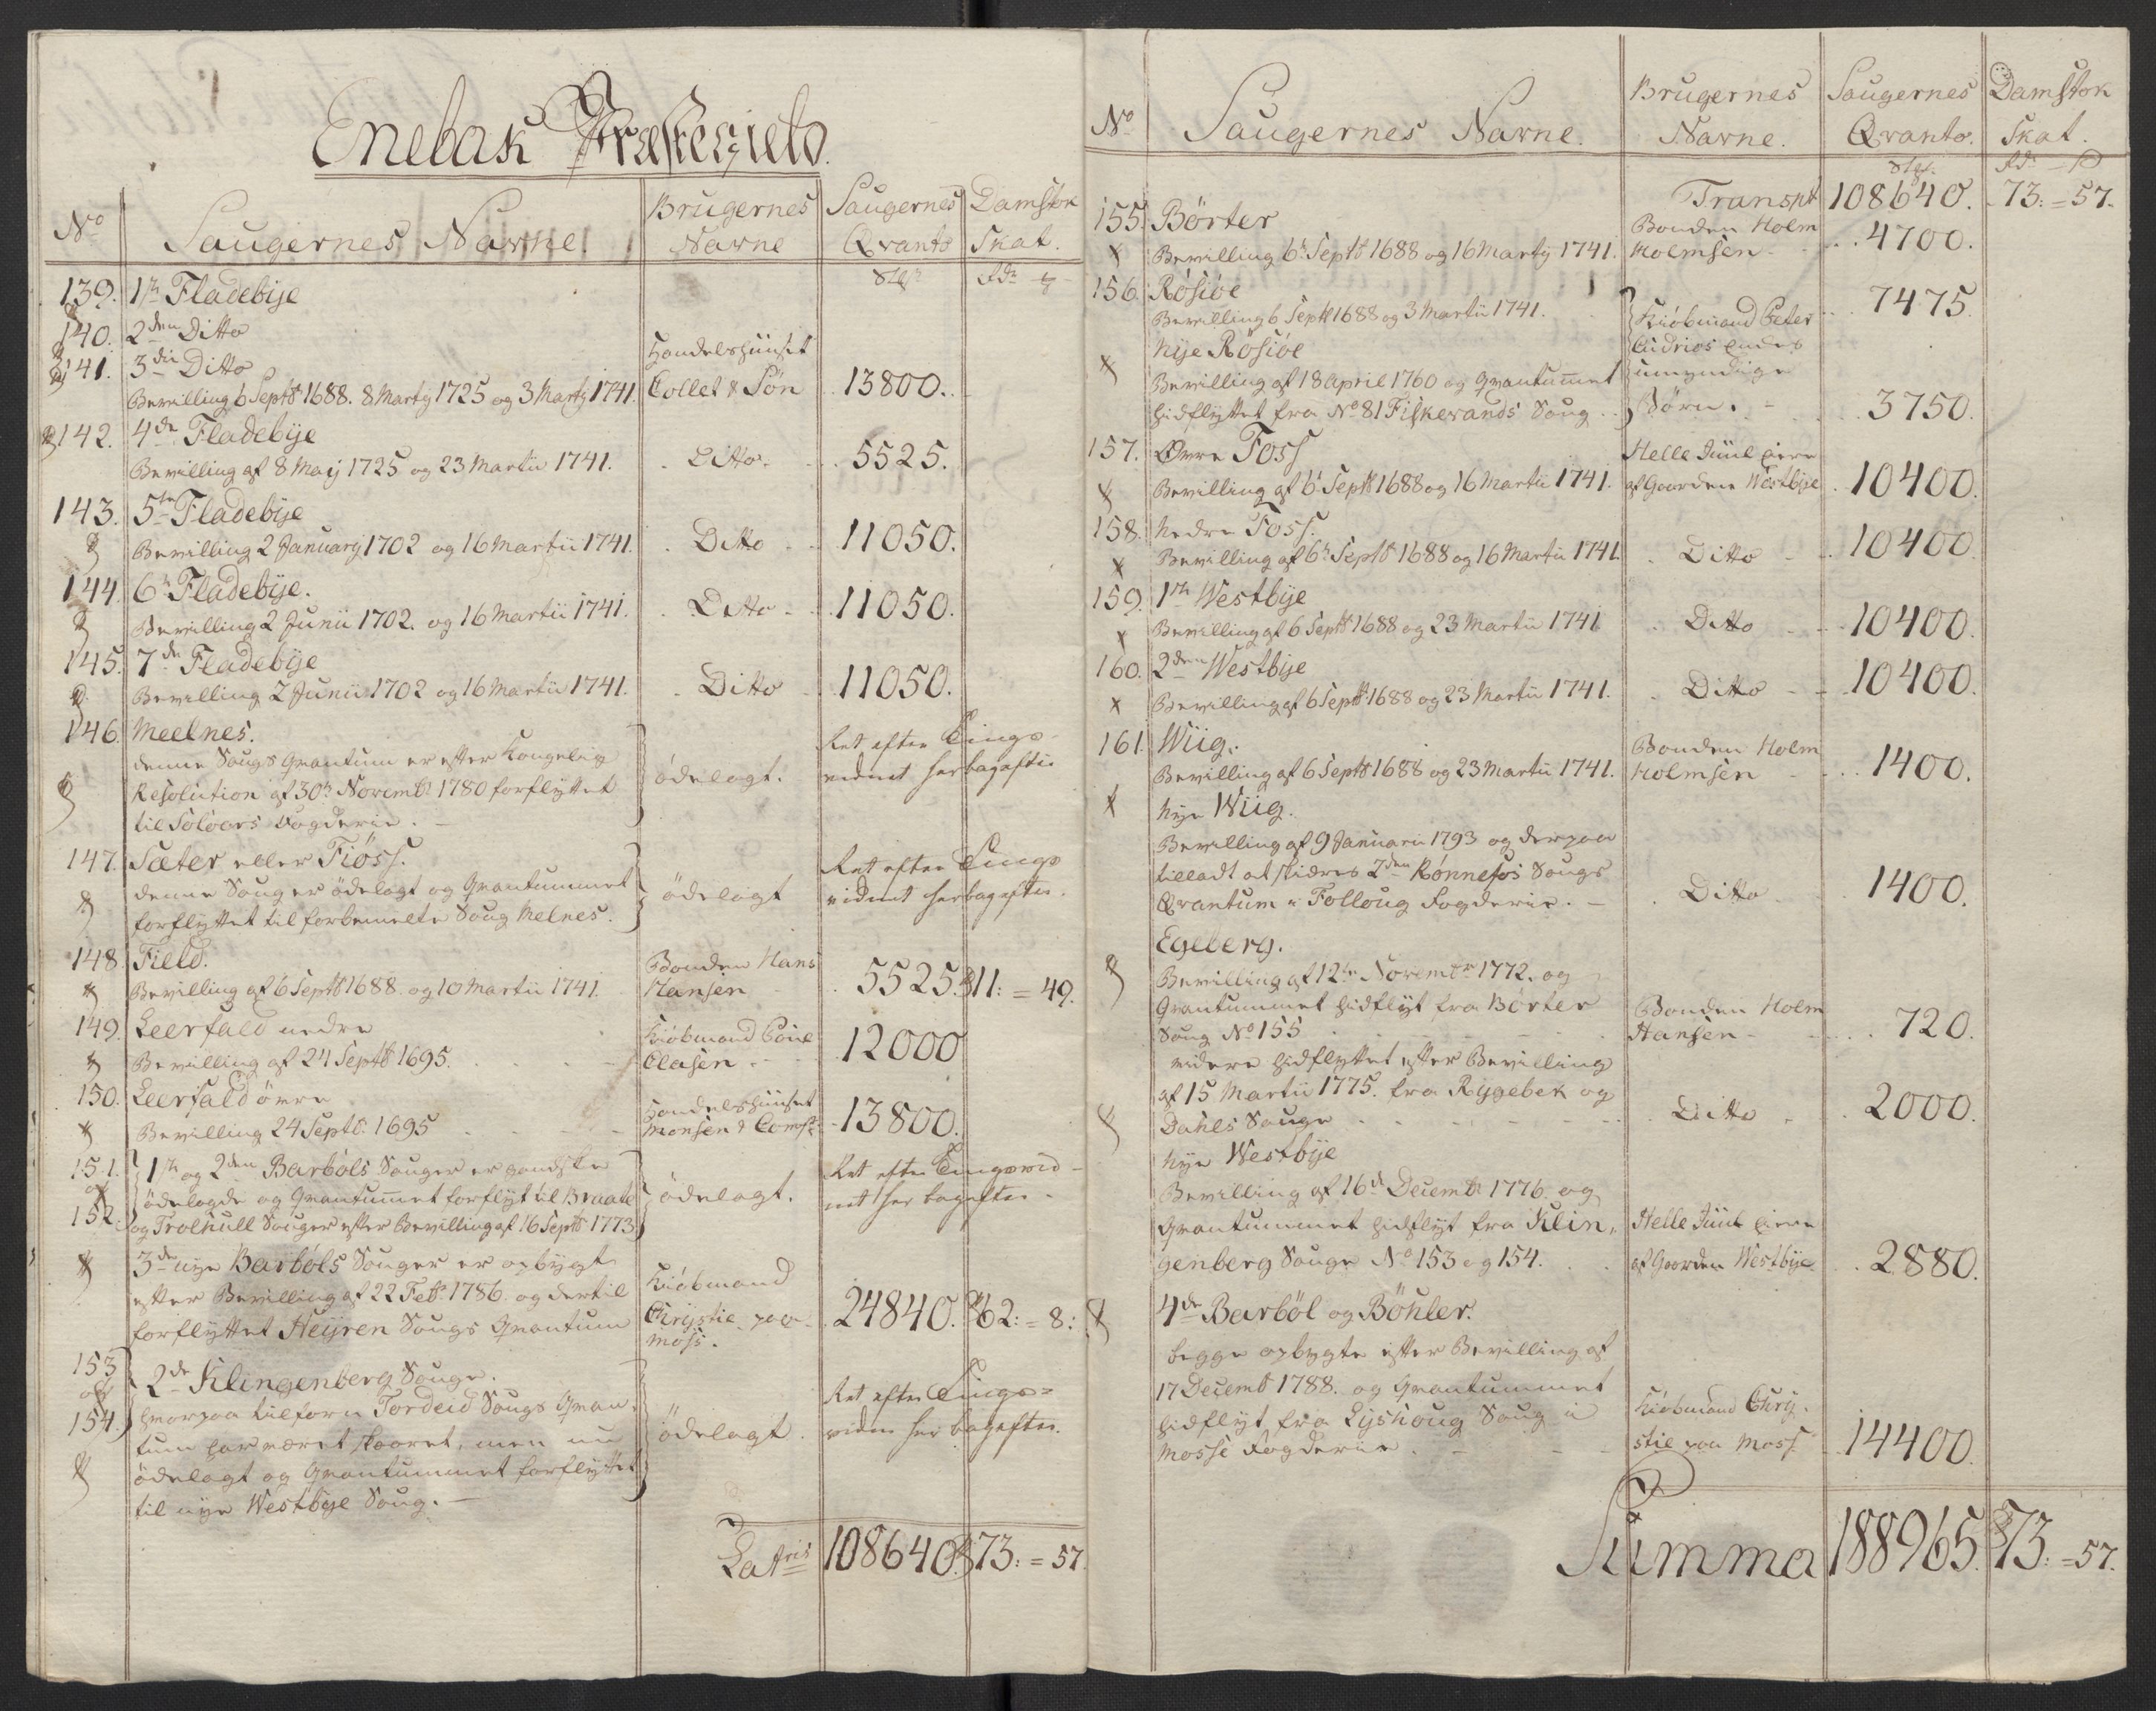 Enebak Præstegield.
No
Saugernes Navne.
Brugernes Navne
Saugernes Qvanto
Damstok Skat.
139. 1ste Fladebÿe
140. 2den Ditto
141. 3die Ditto
Bevilling 6 Septb 1688. 8 Martÿ 1725 og 3 Martÿ 1741.
Handelshuuset
Collet & Søn 13800.
142. 4de Fladebÿe
Bevilling af 8 Maij 1725 og 23 Martii 1741. Ditto. 5525.
143. 5te Fladebÿe
Bevilling 2 Januarÿ 1702 og 16 Martii 1741. Ditto 11050.
144. 6te Fladebÿe.
Bevilling 2 Junii 1702. og 16 Martii 1741. Ditto 11050.
145. 7de Fladebÿe
Bevilling 2 Junii 1702 og 16 Martii 1741. Ditto 11050.
146. Meelnes.
denne Saugs Qvantum er efter Kongelig
Resolution af 30te Novembr 1780 forflyttet
til Soløers Fogderie.
ödelagt.
Ret efter Tings-
vidnet herbagefter
147. Sæter eller Fiøss.
denne Saug er ödelagt og Qvantummet
forflyttet til forbemelte Saug Melnes.
ödelagt
Ret efter Tings
vidnet herbagefter.
148. Field.
Bevilling af 6 Septb 1688. og 10 Martii 1741.
Bonden Hans
Hansen 5525. 11: = 49.
149. Leerfald nedre
Bevilling af 24 Septb 1695.
Kiöbmand Poul
Clasen 12000
150. Leerfald övre
Bevilling 24 Septb. 1695
Handelshuuset
Monsen & Comp: 13800.
151. og 152. 1ste og 2den Barböls Sauger er gandske
ödelagde og Qvantummet forflyt til Braate
og Trolhull Sauger efter Bevilling af 16 Septb 1773
ödelagt.
Ret efter Tingsvid-
net her bagefter.
3de nye Barböls Sauger er opbygt
efter Bevilling af 22 Feb. 1786. og dertil
forflyttet Heÿren Saugs Qvantum
Kiöbmand
Chrÿstie paa
Moss. 24840. 62: = 8:
153 og 154. 2de Klingenberg Sauge.
hvorpaa tilforn Tordeid Saugs Qvan-
tum har været skaaret, men nu
ödelagt og Qvantummet forflyttet
til nye Westbÿe Saug.
ödelagt.
Ret efter Tings-
vidne her bagefter.
Latris 108640. 73: = 57.
No
Saugernes Navne.
Brugernes Navne.
Saugernes Qvanto.
Damstok Skat.
Transpt 108640. 73: = 57.
155. Börter
Bevilling 6te Septb 1688 og 16 Martÿ 1741.
Bonden Holm
Holmsen 4700.
156. Rösiöe
Bevilling 6 Septb 1688 og 3 Martii 1741. 7475
Nÿe Rösiöe
Bevilling af 18 April 1760 og Qvantummet
hidflyttet fra No 81 Fiskevands Saug
Kiöbmand Peter
umyndige
Börn. 3750.
157. Övre Foss
Bevilling af 6te Septb 1688 og 16 Martii 1741.
Helle Juul Eiere
af Gaarden Westbÿe 10400.
158. Nedre Foss.
Bevilling af 6te Septb 1688 og 16 Martii 1741. Ditto 10400
159. 1ste Westbÿe
Bevilling af 6 Septb 1688 og 23 Martii 1741 Ditto 10400.
160. 2den Westbÿe
Bevilling af 6 Septb 1688 og 23 Martii 1741. Ditto 10400.
161. Wiig.
Bevilling af 6 Septb 1688 og 23 Martii 1741.
Bonden Holm
Holmsen 1400.
Nye Wiig.
Bevilling af 9 Januari 1793 og derpaa
tilladt at skiæres 2den Rönnefos Saugs
Qvantum i Folloug Fogderie. Ditto 1400.
Egeberg.
Bevilling af 12te Novembr 1772. og
Qvantummet hidflyt fra Börter
Saug No 155
Bonden Holm
Hansen 720.
videre hidflyttet efter Bevilling
af 15 Martii 1775. fra Rygebek og
Dahls Sauge Ditto 2000.
Nye Westbÿe
Bevilling af 16de Decembr 1776. og
Qvantummet hidflyt fra Klin-
genberg Sauge No 153 og 154.
Helle Juul Eiere
af Gaarden Westbÿe 2880.
4de Barböl og Böhler.
begge opbygte efter Bevilling af
17 Decemb 1788. og Qvantummet
hidflyt fra Lÿshoug Saug i
Mosse Fogderie
Kiöbmand Chrÿ-
stie paa Moss 14400.
Summa 188965. 73: = 57.